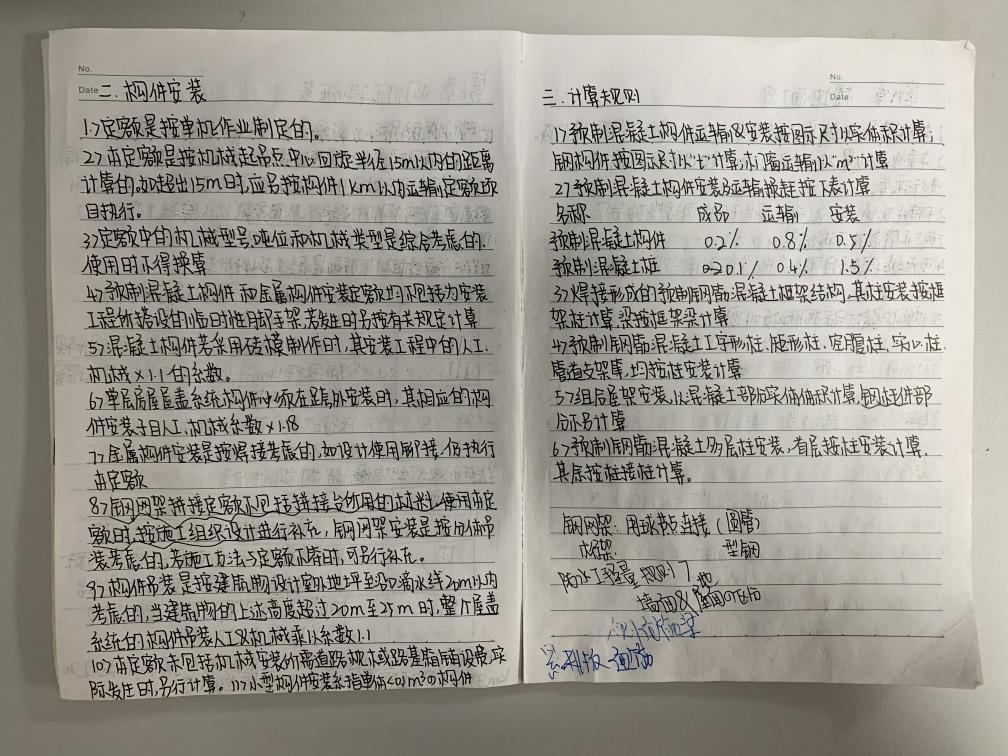 No.
Date
二.构件安装
1.>定额是按单机作业制定的。
2.>本定额是按机械起吊点中心回旋半径15m以内的距离
计算的,如超出15m时,应另按构件1km以内运输定额项
目执行。
3>定额中的机械型号,吨位和机械类型是综合考虑的.
使用时不得换算
4>预制混凝土构件和金属构件安装定额均不包括为安装
工程所搭设的临时性脚手架,若发生时另按有关规定计算
5>混凝土构件若采用砖模制作时,其安装工程中的人工.
机械×1.1的系数。
6>单层房屋屋盖系统构件必须在跨外安装时,其相应的构
件安装子目人工.机械系数×1.18
7>金属构件安装是按焊接考虑的,如设计使用铆接,仍执行
本定额
8>钢网架拼接定额不包括拼接台所用的材料,使用本定
额时,按施工组织设计进行补充,钢网架安装是按分体吊
装考虑的,若施工方法与定额不符时,可另行补充。
9>构件吊装是按建筑物设计室外地坪至沿滴水线20m以内
考虑的,当建筑物的上述高度超过20m至25m时,整个屋盖
系统的构件吊装人工及机械乘以系数1.1
10>本定额未包括机械安装所需道路机械或路基箱铺设费,实
际发生时,另行计算。11>小型构件安装系指单体<0.1m³的构件
No.
Date
三.计算规则
1>预制混凝土构件运输及安装按图示尺寸以实体积计算;
钢构件按图示尺寸以"t"计算;木门窗运输以"m²"计算
2>预制混凝土构件安装及运输损耗按下表计算
名称 成品 运输 安装
预制混凝土构件 0.2% 0.8% 0.5%
预制混凝土桩 0.1% 0.4% 1.5%
3>焊接形成的预制钢筋混凝土框架结构,其柱安装按框
架柱计算,梁按框架梁计算
4>预制钢筋混凝土工字形柱.矩形柱.空腹柱.实心柱.
管道支架等,均按柱安装计算
5>组合屋架安装,以混凝土部分实体体积计算,钢杆件部
分不另计算
6>预制钢筋混凝土多层柱安装,首层按柱安装计算.
其余按柱接柱计算。
钢网架:用球节点连接(圆管)
桁架: 型钢
防水工程量规则
墙面&屋面
地